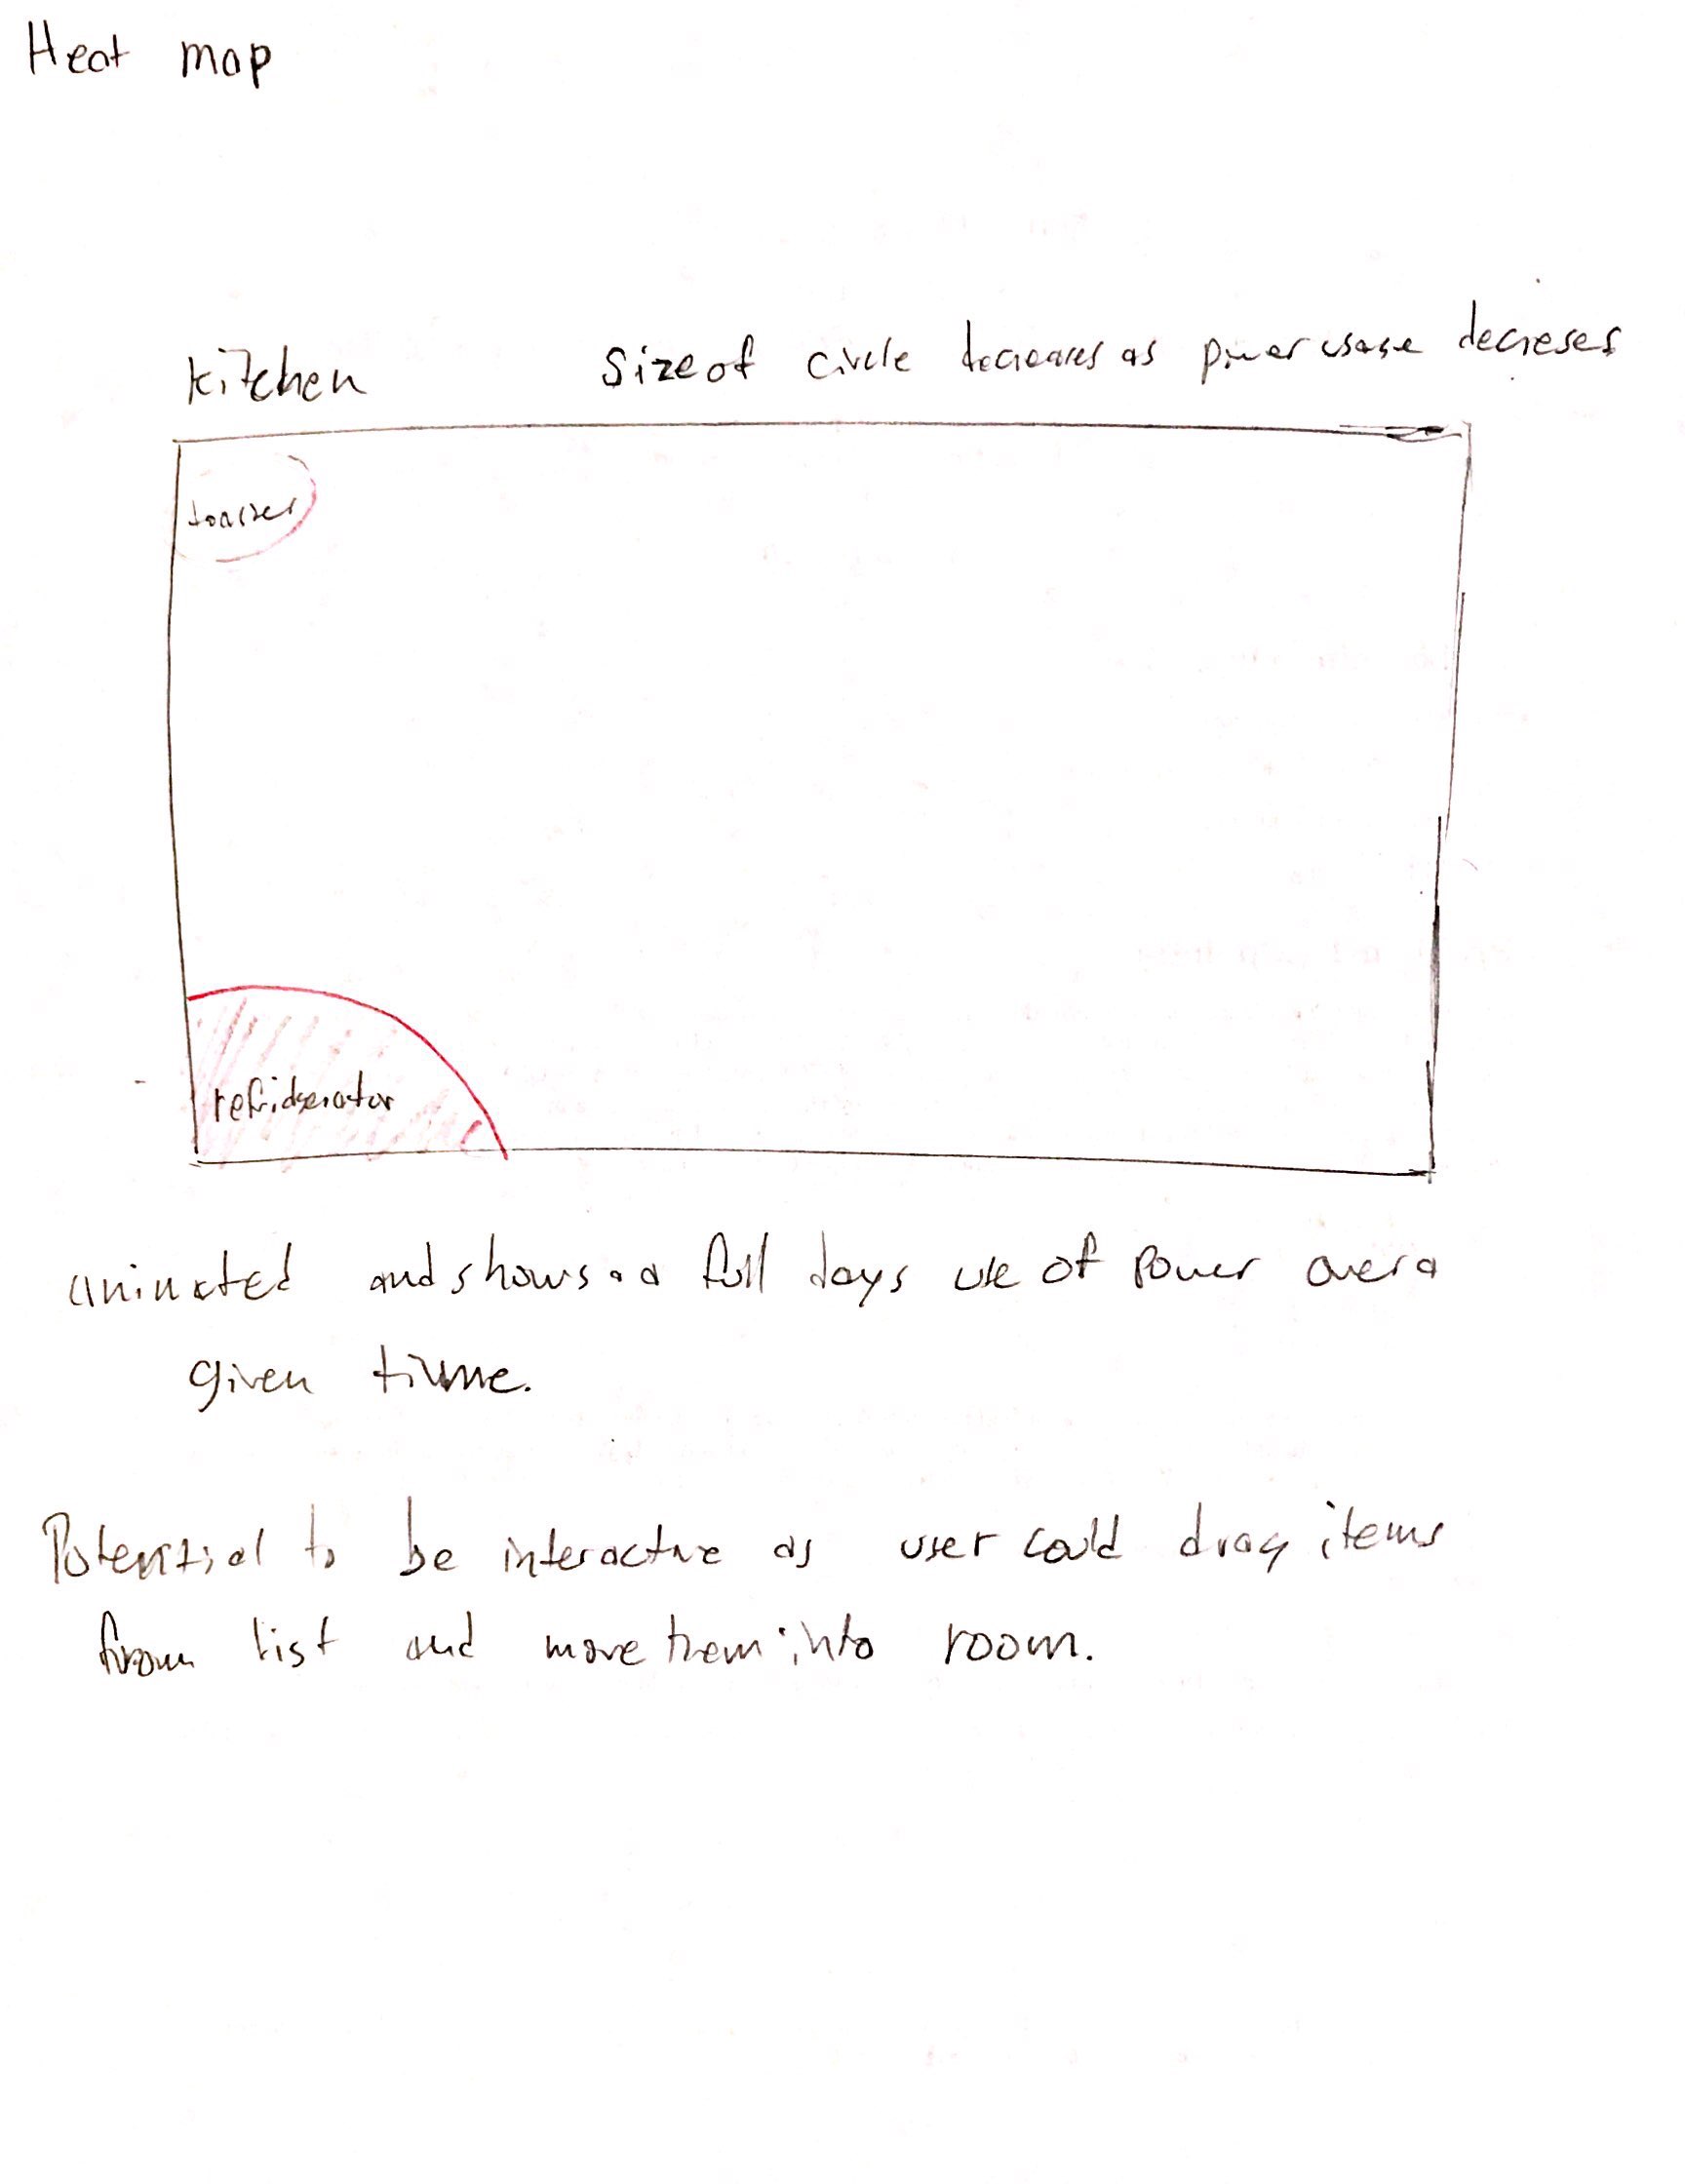 Heat map
Kitchen Size of circle decreases as power usage decreses
toaster
refridgerator
animated and shows a full days use of Power over a
given time.
Potential to be interactive as user could drag items
from list and move them into room.